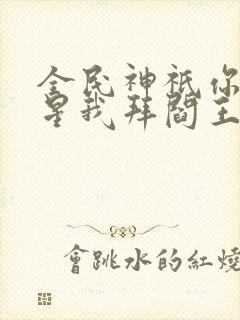 全民神祇你
星我拜閻王
會跳水的紅燒